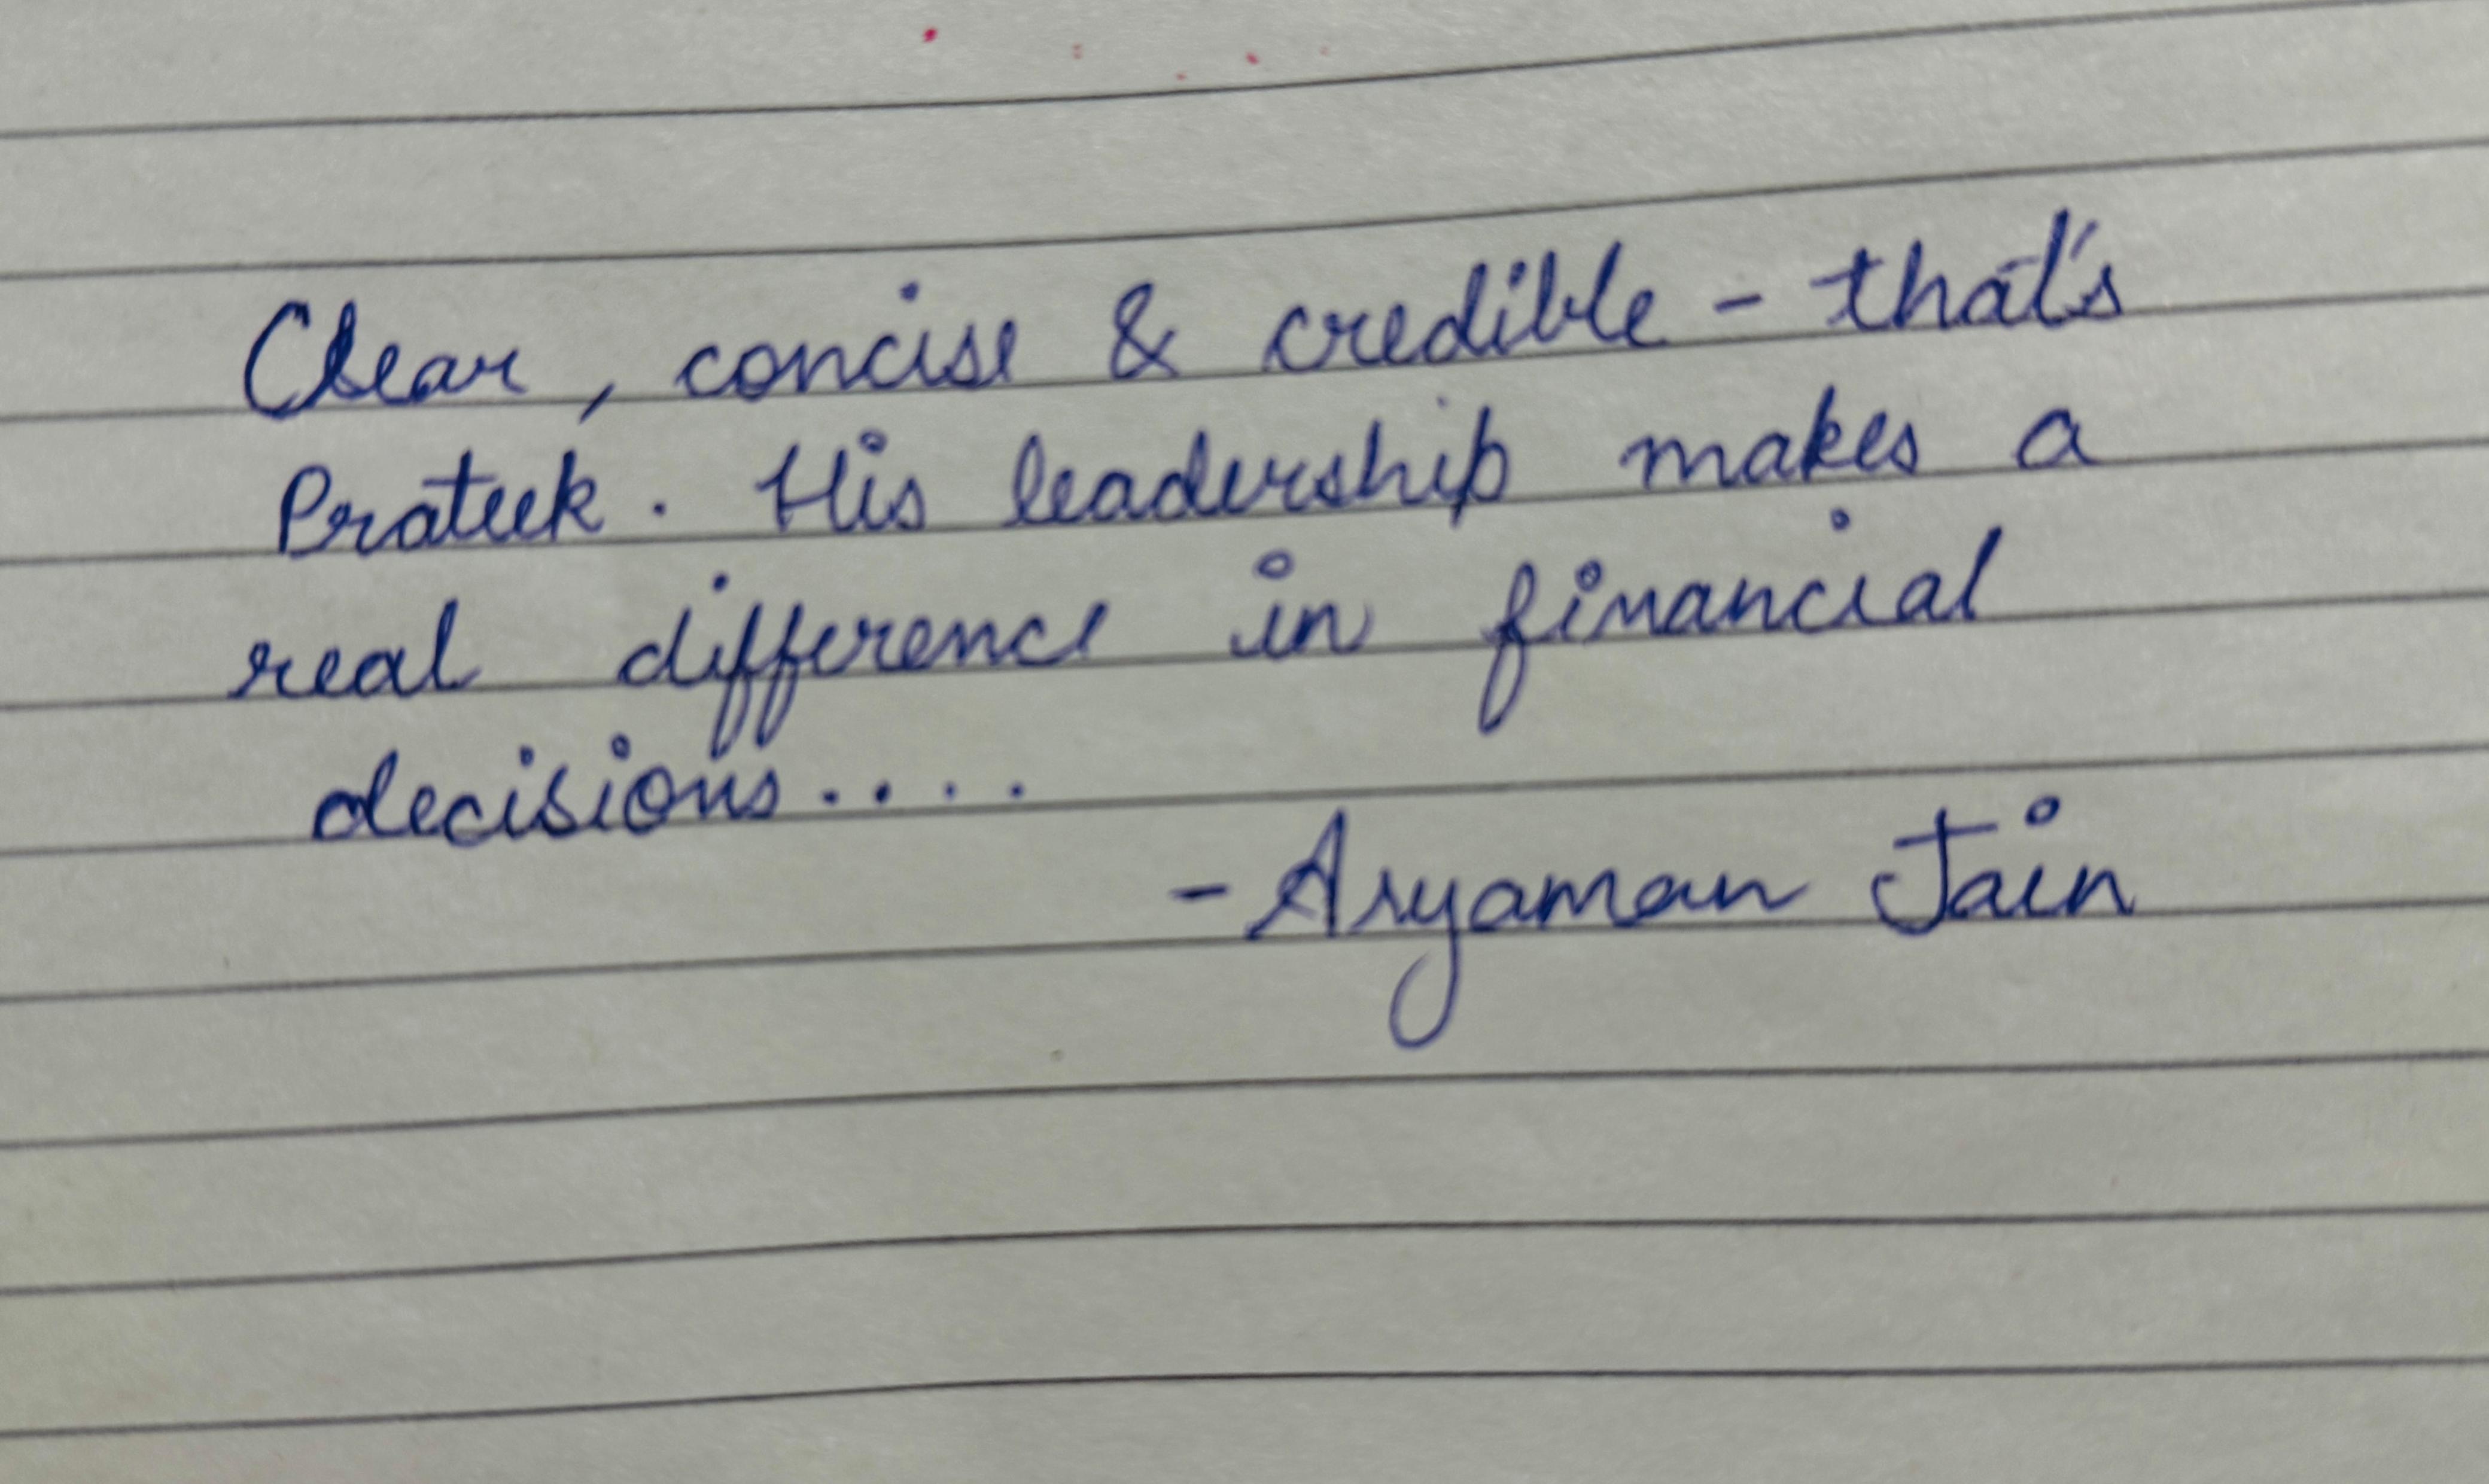 Clear, concise & credible - that's
Prateek. His leadership makes a
real difference in financial
decisions....
- Aryaman Jain